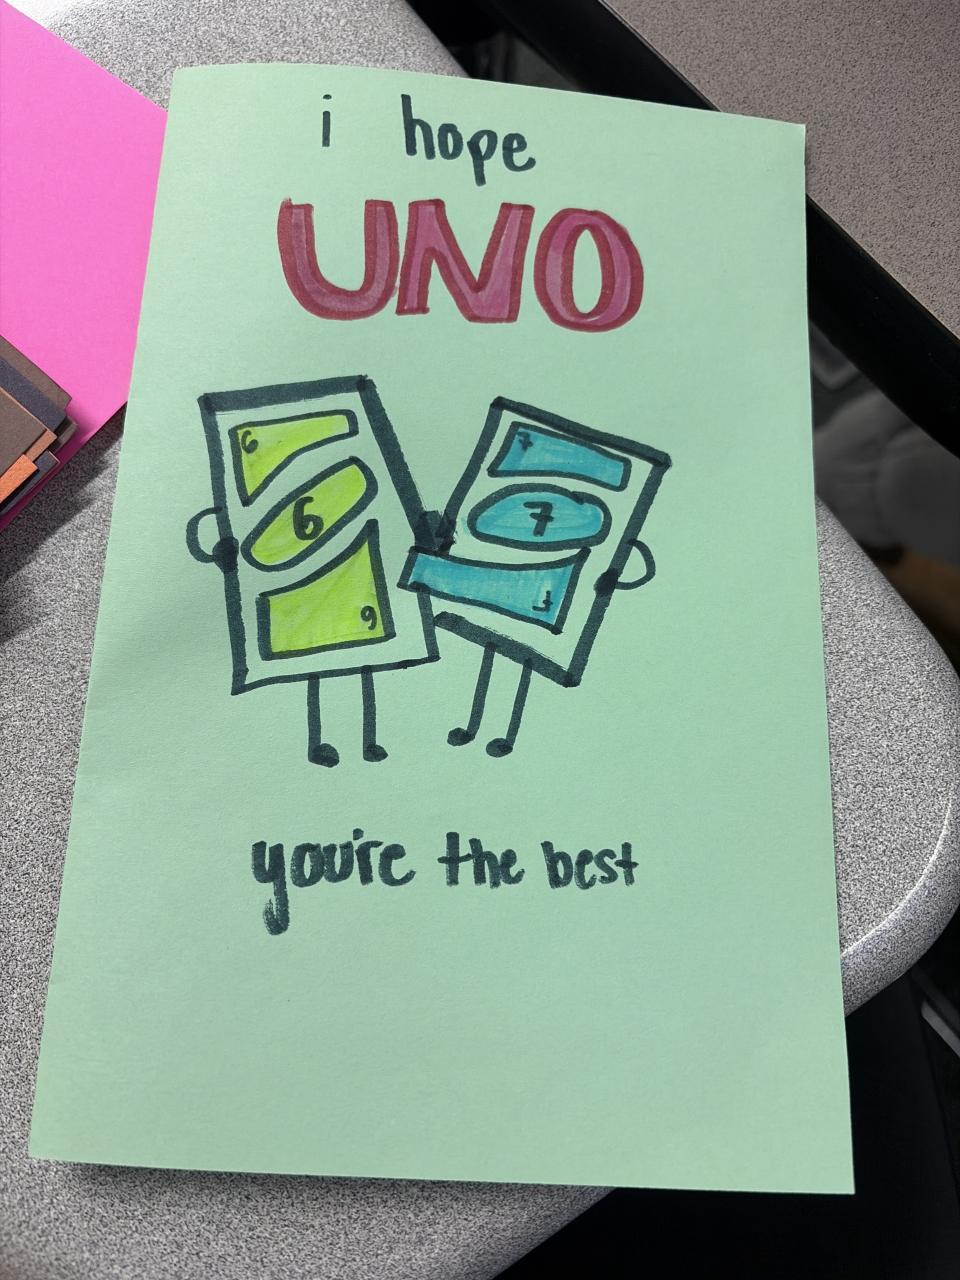 i hope
UNO
6
7
6
7
6
7
you're the best